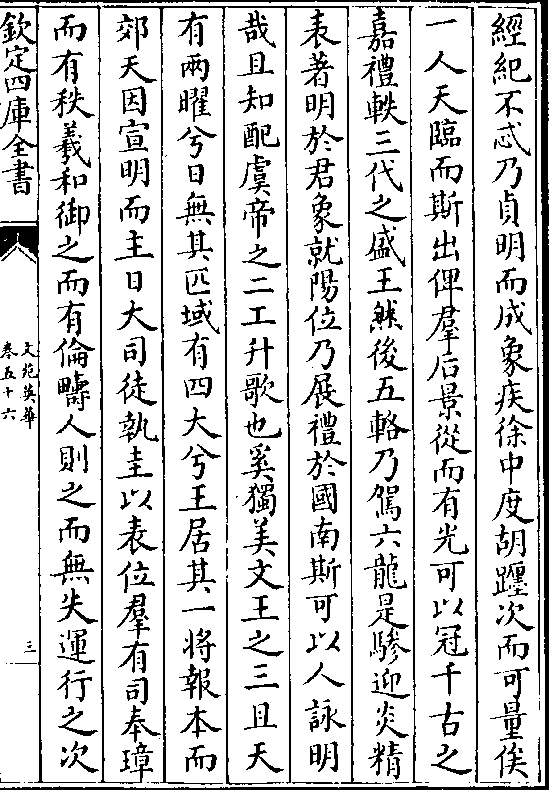 經紀不忒乃貞明而成象疾徐中度胡躔次而可量俟
一人天臨而斯出俾羣后景從而有光可以冠千古之
嘉禮軼三代之盛王然後五輅乃駕六龍是驂迎炎精
表著明於君象就陽位乃展禮於國南斯可以人詠明
哉且知配虞帝之二工升歌也奚獨美文王之三且天
有兩曜兮日無其匹域有四大兮王居其一將報本而
郊天因宣明而主日大司徒執圭以表位羣有司奉璋
而有秩羲和御之而有倫疇人則之而無失運行之次
欽定四庫全書
文苑英華
卷五十六
三